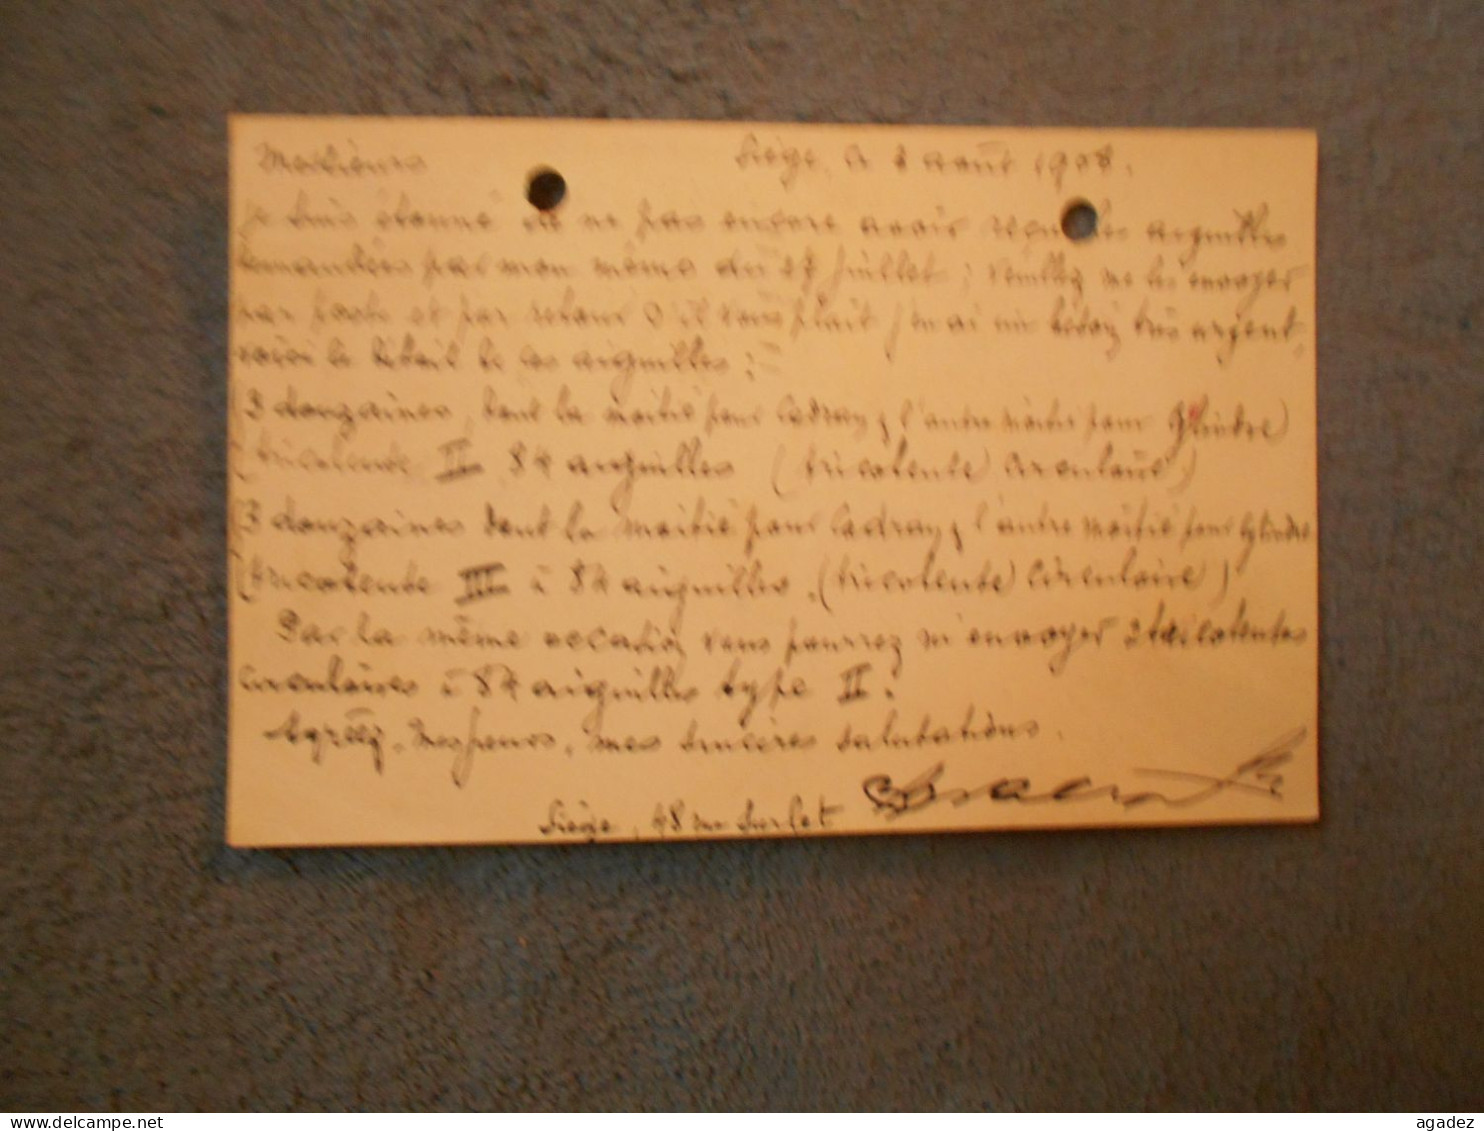 Messieurs Liège, le 2 août 1908.
Je suis étonné de ne pas encore avoir reçu les aiguilles
demandées par mon mémo du 27 juillet ; veuillez me les envoyer
par poste et par retour s'il vous plait, j'en ai un besoin très urgent,
voici le détail de ces aiguilles :
3 douzaines, dont la moitié pour Cadran, l'autre moitié pour Cylindre
(tricoteuse II 84 aiguilles (tricoteuse circulaire)
3 douzaines dont la moitié pour Cadran, l'autre moitié pour Cylindre
(tricoteuse III à 84 aiguilles. (tricoteuse circulaire)
Par la même occasion vous pourrez m'envoyer 2 tricoteuses
circulaires à 84 aiguilles type II.
Agréez, Messieurs, mes sincères salutations.
Liège, 48 rue Surlet
agadez
www.delcampe.net